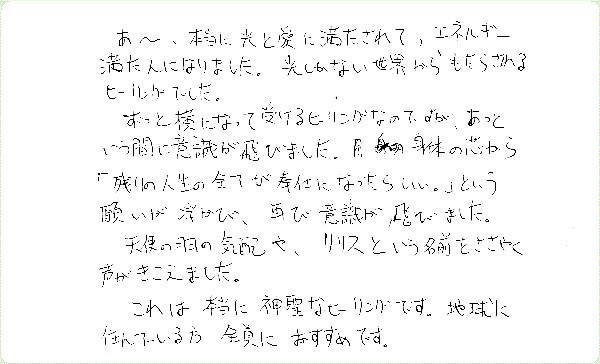 あ～、本当に光と愛に満たされて、エネルギー
満タんになりました。光しかない世界からもたらされる
ヒーリングでした。
ずっと横になって受けるヒーリングなのですが、あっと
いう間に意識が飛びました。身体の芯から
「残りの人生の全てが奉仕になったらいい。」という
願いが浮かび、再び意識が飛びました。
天使の羽の気配や、リリスという名前をささやく
声がきこえました。
これは本当に神聖なヒーリングです。地球に
住んでいる方全員におすすめです。